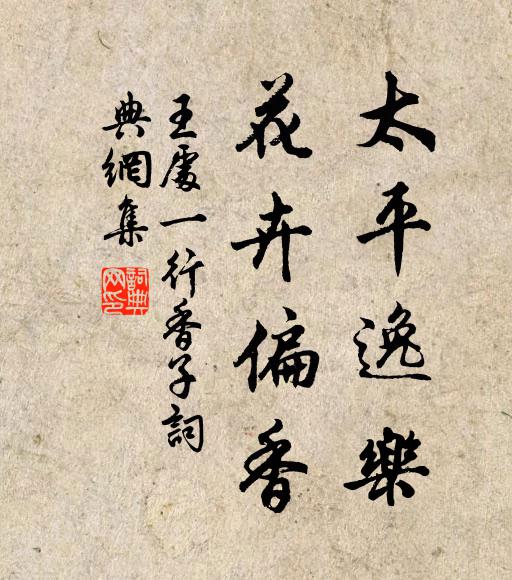 太平逸樂
花卉偏香
王處一行香子詞
典網集
詞典網印